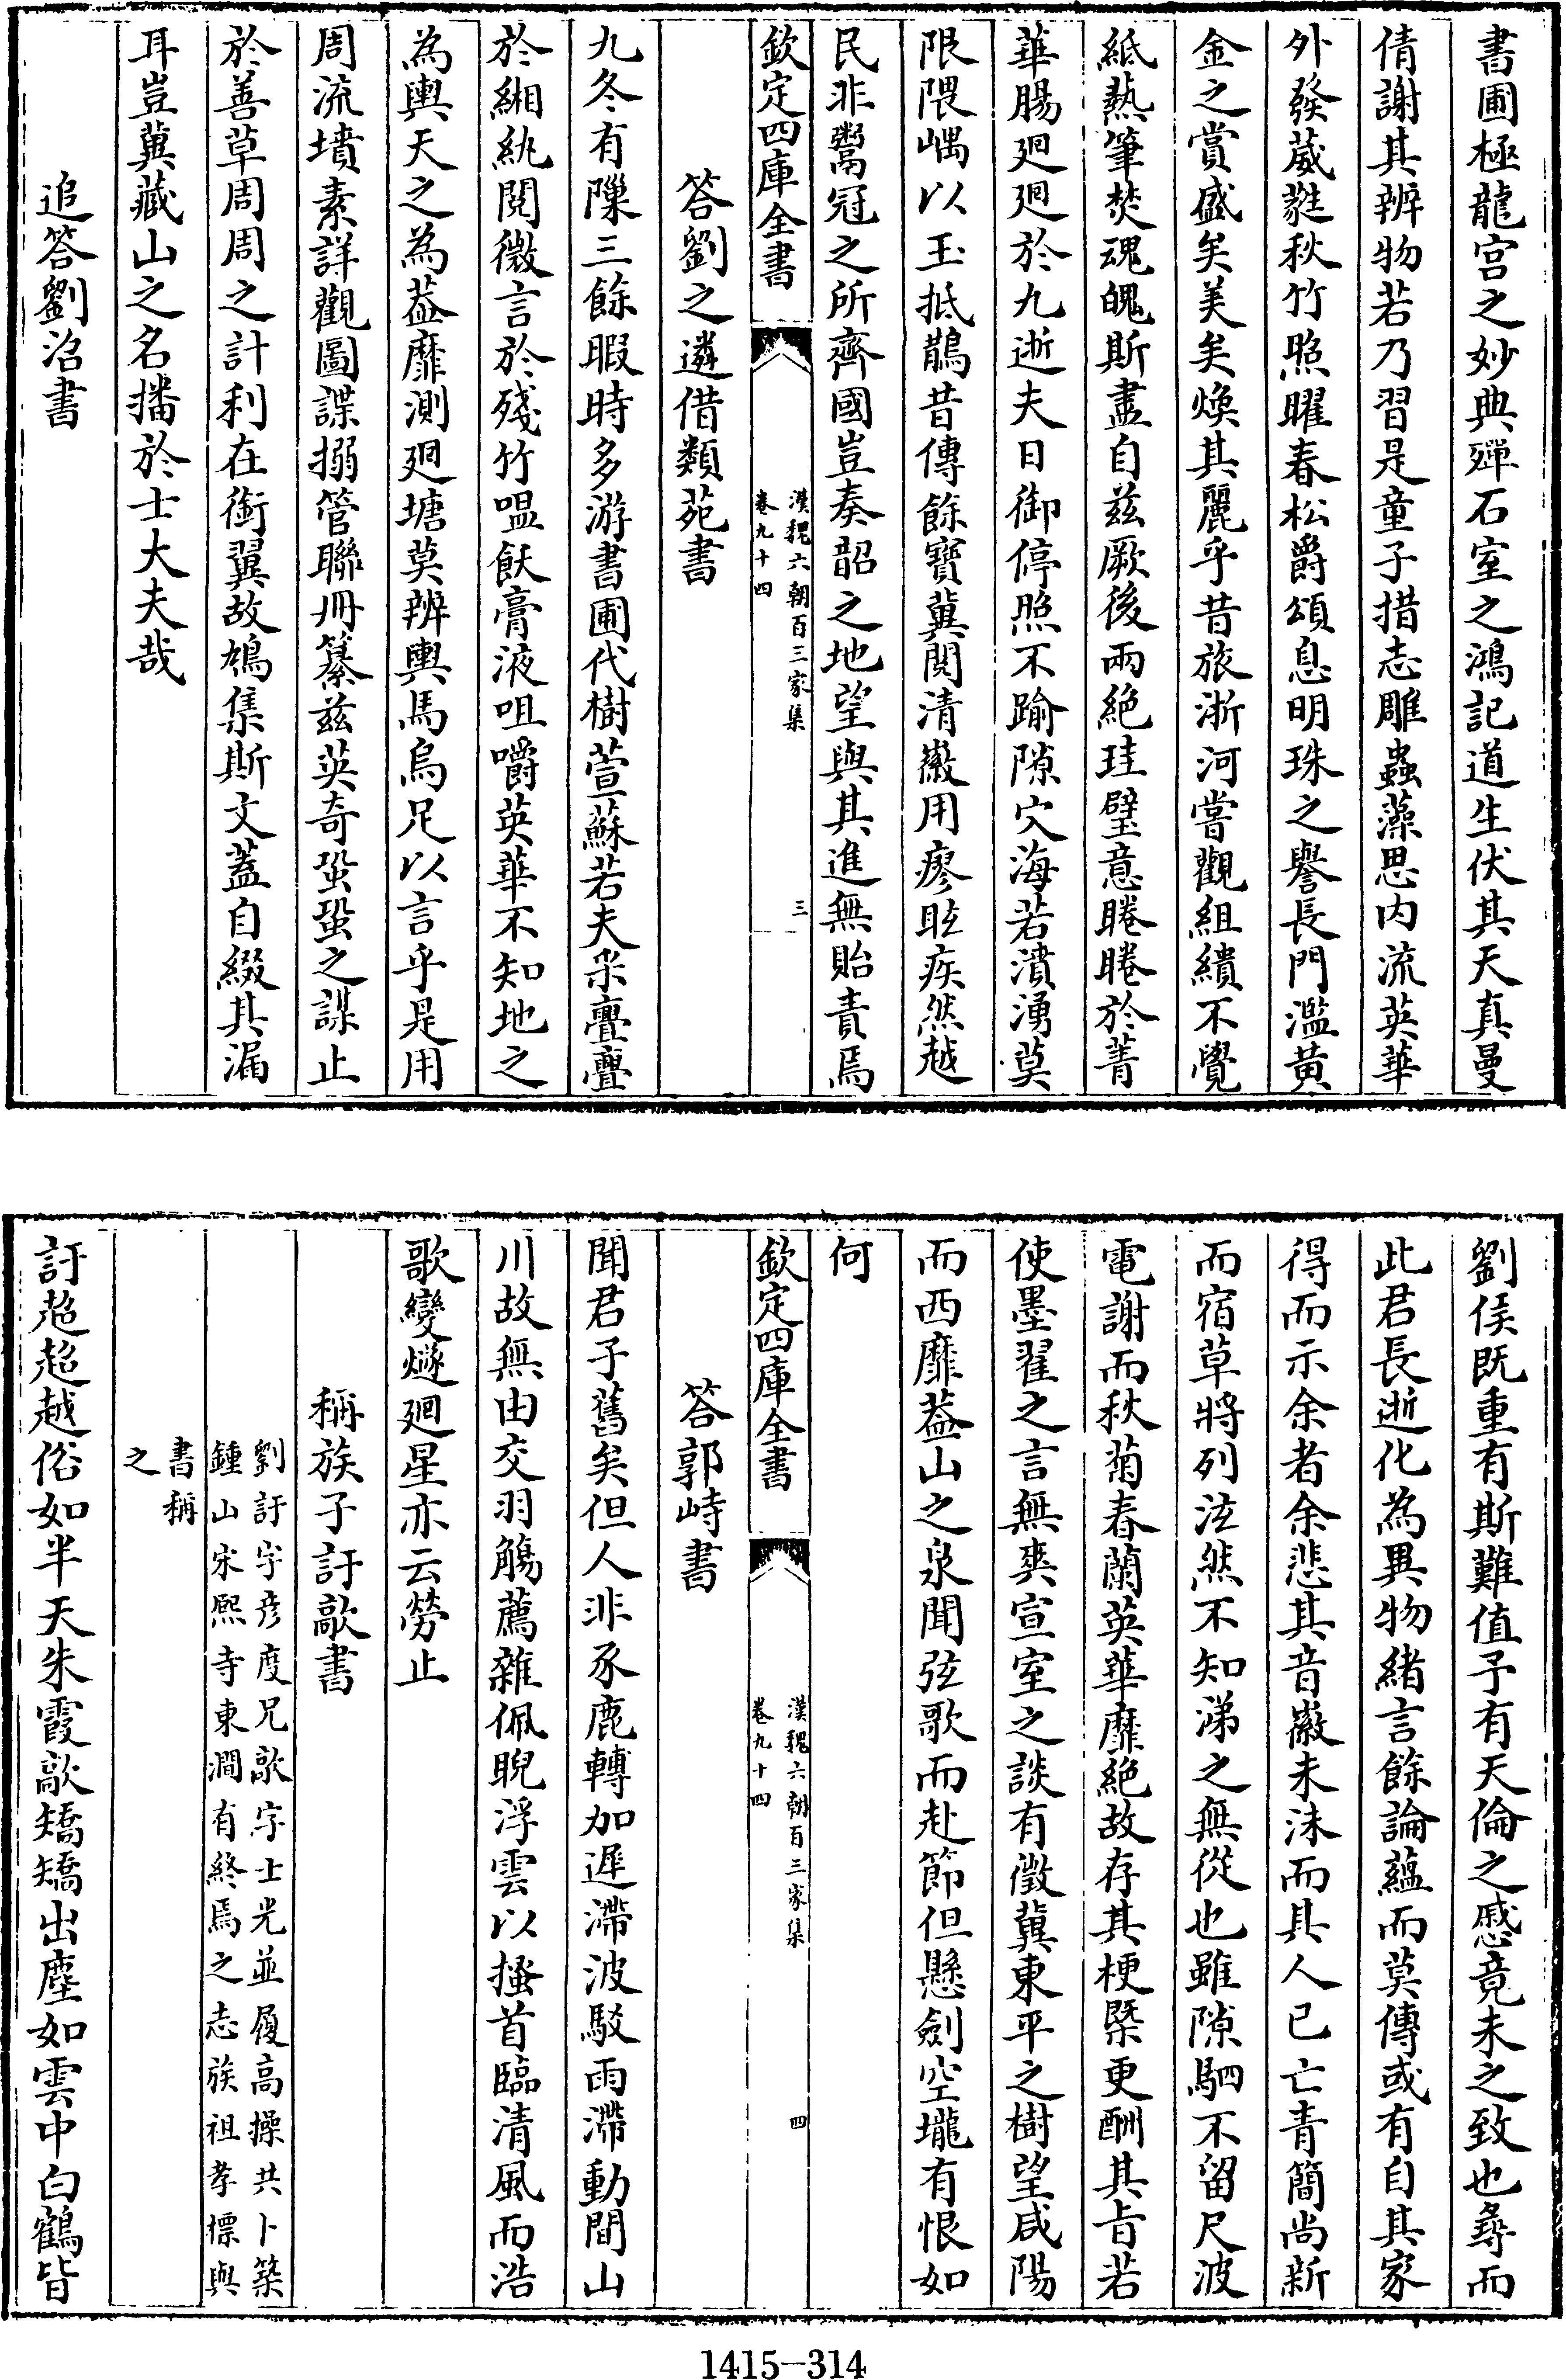 書圃極龍宮之妙典殫石室之鴻記道生伏其天真曼
倩謝其辨物若乃習是童子措志雕蟲藻思内流英華
外發葳蕤秋竹照曜春松爵頌息明珠之譽長門濫黄
金之賞盛矣美矣煥其麗乎昔旅浙河嘗觀組繢不覺
紙熱筆焚魂魄斯盡自兹厥後兩絶珪璧意睠睠於菁
華腸廻廻於九逝夫日御停照不踰隙穴海若濆湧莫
限隈嵎以玉抵鵲昔傳餘寶冀閲清徽用瘳眩疾然越
民非鬻冠之所齊國豈奏韶之地望與其進無貽責焉
欽定四庫全書
漢魏六朝百三家集
卷九十四
三
答劉之遴借類苑書
九冬有隟三餘暇時多游書圃代樹萱蘇若夫采亹亹
於緗紈閲微言於殘竹嗢飫膏液咀嚼英華不知地之
為輿天之為葢靡測廻塘莫辨輿馬烏足以言乎是用
周流墳素詳觀圖諜搦管聯册纂兹英奇蛩蛩之謀止
於善草周周之計利在銜翼故鳩集斯文蓋自綴其漏
耳豈冀藏山之名播於士大夫哉
追答劉沼書
劉侯既重有斯難值予有天倫之慼竟未之致也尋而
此君長逝化為異物緒言餘論蘊而莫傳或有自其家
得而示余者余悲其音徽未沬而其人已亡青簡尚新
而宿草將列泫然不知涕之無從也雖隙駟不留尺波
電謝而秋菊春蘭英華靡絶故存其梗槩更酬其旨若
使墨翟之言無爽宣室之談有徵冀東平之樹望咸陽
而西靡葢山之泉聞弦歌而赴節但懸劍空壠有恨如
何
欽定四庫全書
漢魏六朝百三家集
卷九十四
四
答郭峙書
聞君子舊矣但人非豕鹿轉加遲滯波駁雨滯動間山
川故無由交羽觴薦雜佩睨浮雲以搔首臨清風而浩
歌變燧廻星亦云勞止
稱族子訏歊書
劉訏字彦度兄歊字士光並履高操共卜築
鍾山宋熙寺東澗有終焉之志族祖孝標與
書稱
之
訏超超越俗如半天朱霞歊矯矯出塵如雲中白鶴皆
1415-314